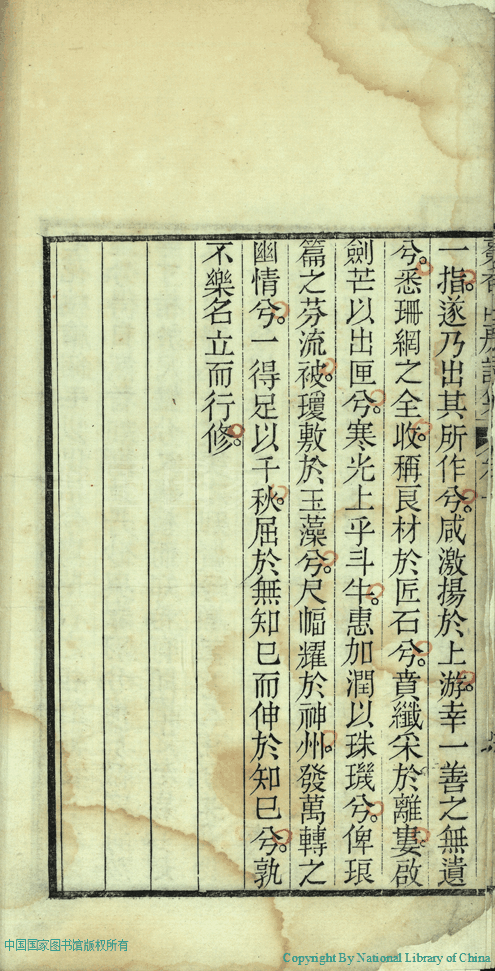 一指遂乃出其所作兮咸激揚於上游幸一善之無遺
兮悉珊網之全收稱良材於匠石兮賁纖采於離婁啟
劍芒以出匣兮寒光上乎斗牛惠加潤以珠璣兮俾琅
篇之芬流被瓊敷於玉藻兮尺幅耀於神州發萬轉之
幽情兮一得足以千秋屈於無知巳而伸於知巳兮孰
不樂名立而行修
中国国家图书馆版权所有
Copyright By National Library of China